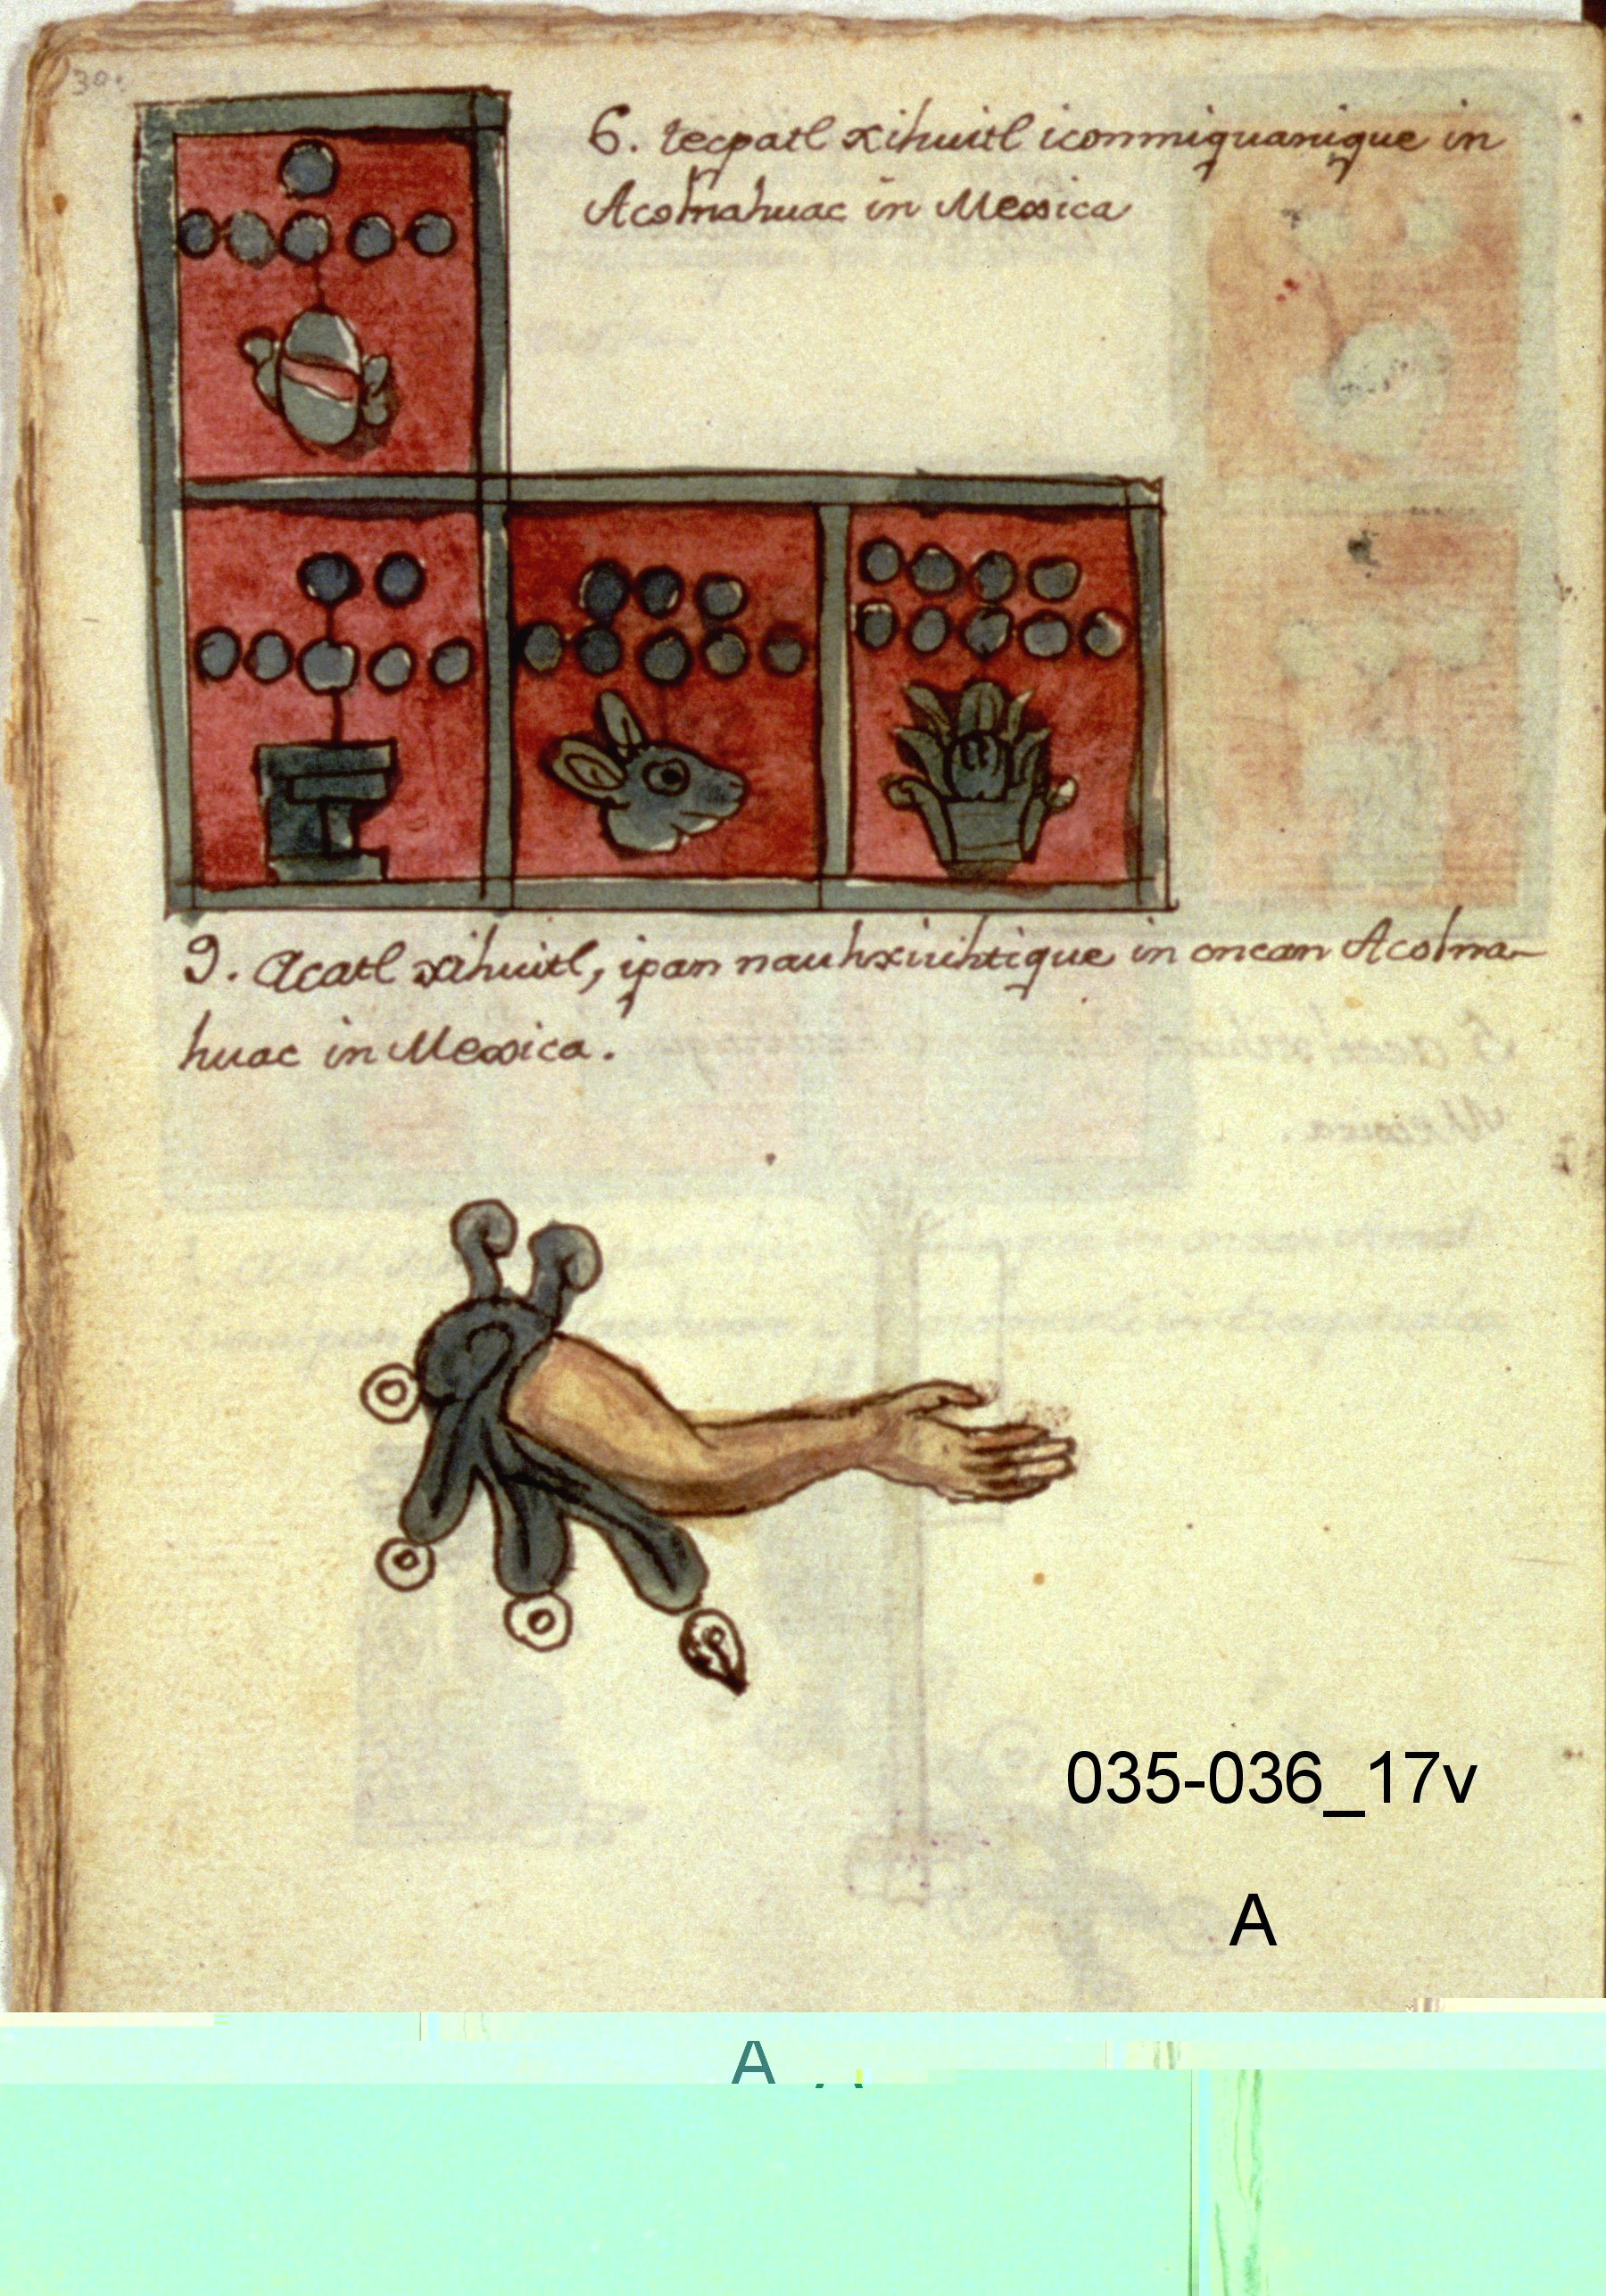 30.
6. tecpatl xihuitl iconmiquanique in
Acolnahuac in Mexica
9. Acatl xihuitl, ipan nauhxiuhtique in oncan Acolna-
huac in Mexica.
035-036_17v
A
A